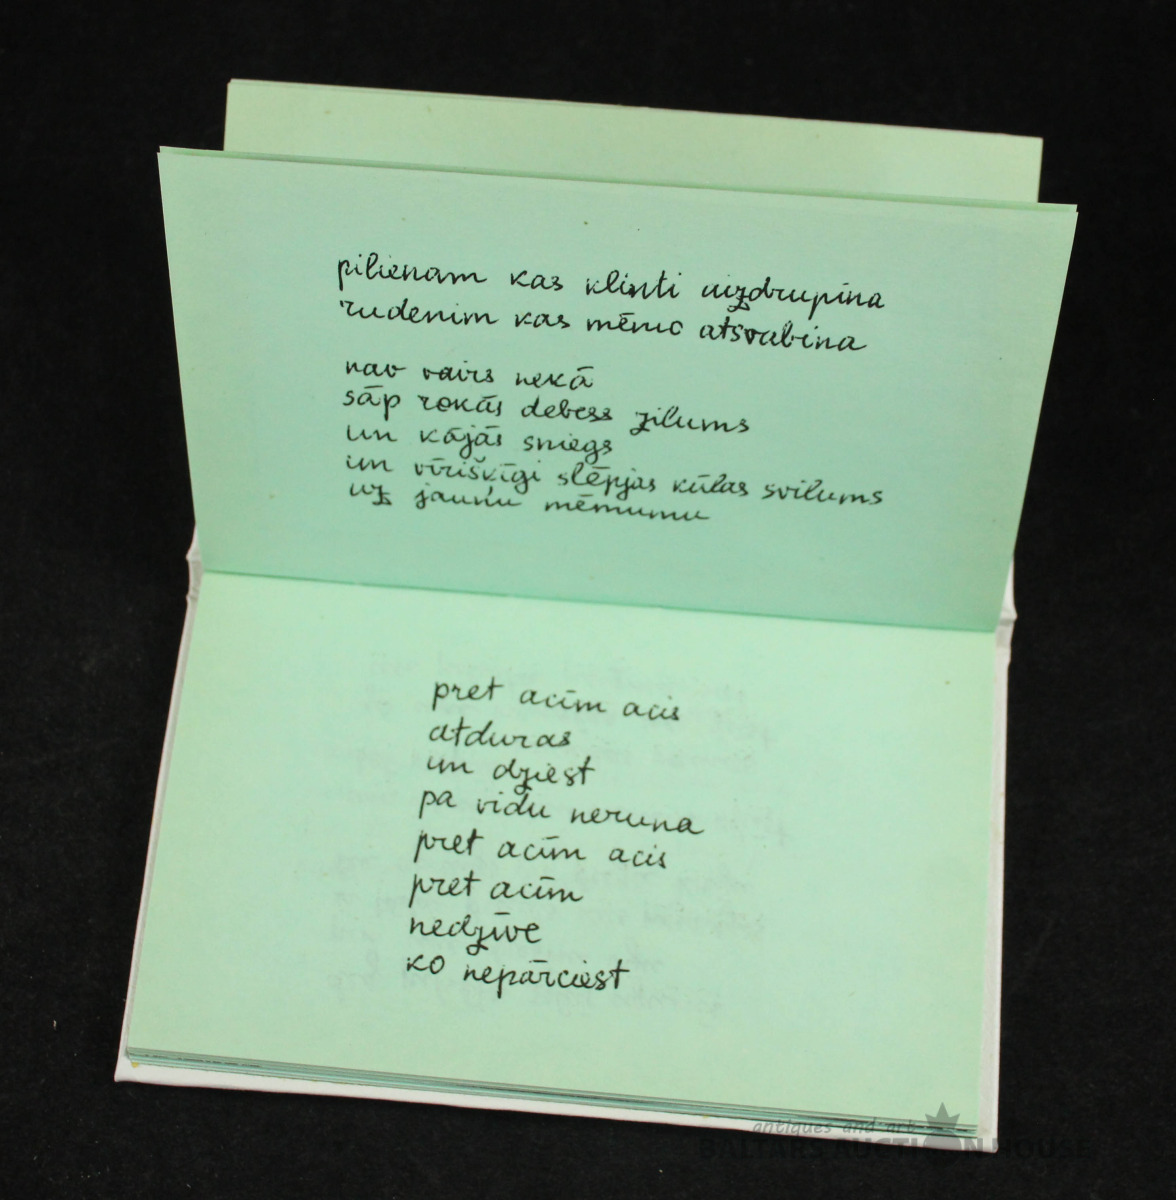 pilienam kas klinti uizdrupina
rudenim kas mēmo atsvabina
nav vairs nekā
sāp rokās debess zilums
un kājās sniegs
un vīrišķīgi slēpjas kūlas svilums
uz jauņu mēmumu
pret acīm acis
atduras
un dziest
pa vidu neruna
pret acīm acis
pret acīm
nedzīve
ko nepārciest
antiques and art
BALTARS AUCTION HOUSE